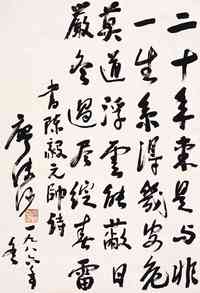 二十年来是与非
一生系得几安危
莫道浮云能蔽日
严冬过尽绽春雷
书陈毅元帅诗
廖汉生
一九八六年
冬